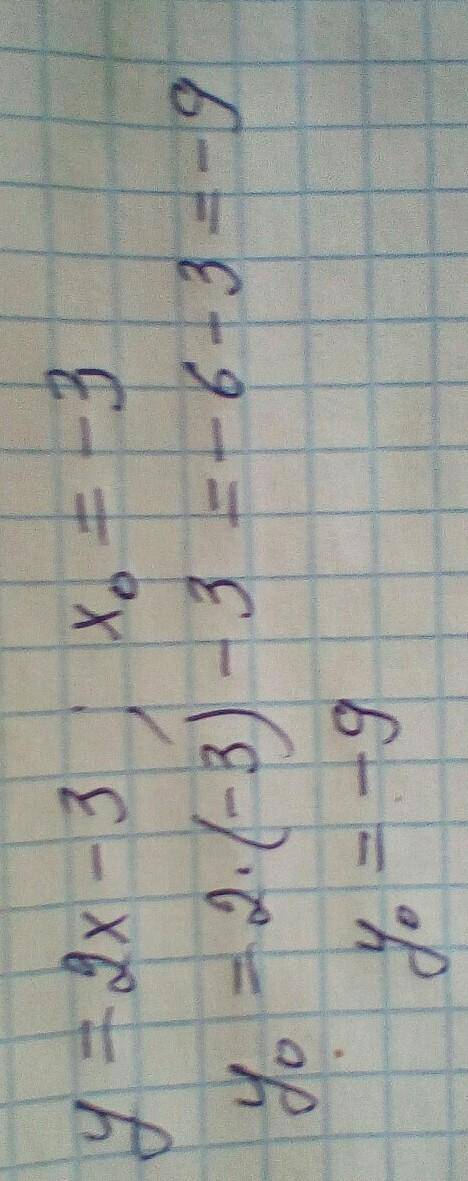 y = 2x - 3 ; x₀ = -3
y₀ = 2·(-3) - 3 = -6 - 3 = -9
y₀ = -9